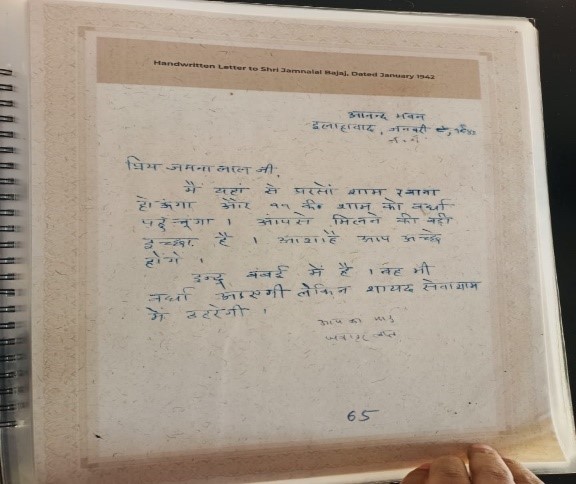 Handwritten Letter to Shri Jamnalal Bajaj, Dated January 1942
आनन्द भवन
इलाहाबाद, जनवरी
प्रिय जमना लाल जी,
मैं यहां से परसों शाम रवाना
होऊंगा और ११ की शाम को वर्धा
पहुंचूंगा । आपसे मिलने की बड़ी
इच्छा है । आशा है आप अच्छे
होंगे ।
इन्दू बंबई में है । वह भी
वर्धा आएगी लेकिन शायद सेवाग्राम
में ठहरेगी ।
आप का भाई
जवाहर लाल
65